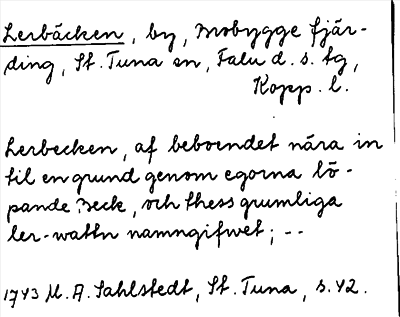 Lerbäcken, by, Mobygge fjär-
ding, St. Tuna sn, Falu d. s. tg,
Kopp. l.
Lerbecken, af beboendet nära in
til en grund genom egorna lö-
pande Beck, och thess grumliga
ler-wattn namngifwet; --
1743 M. A. Sahlstedt, St. Tuna, s. 42.